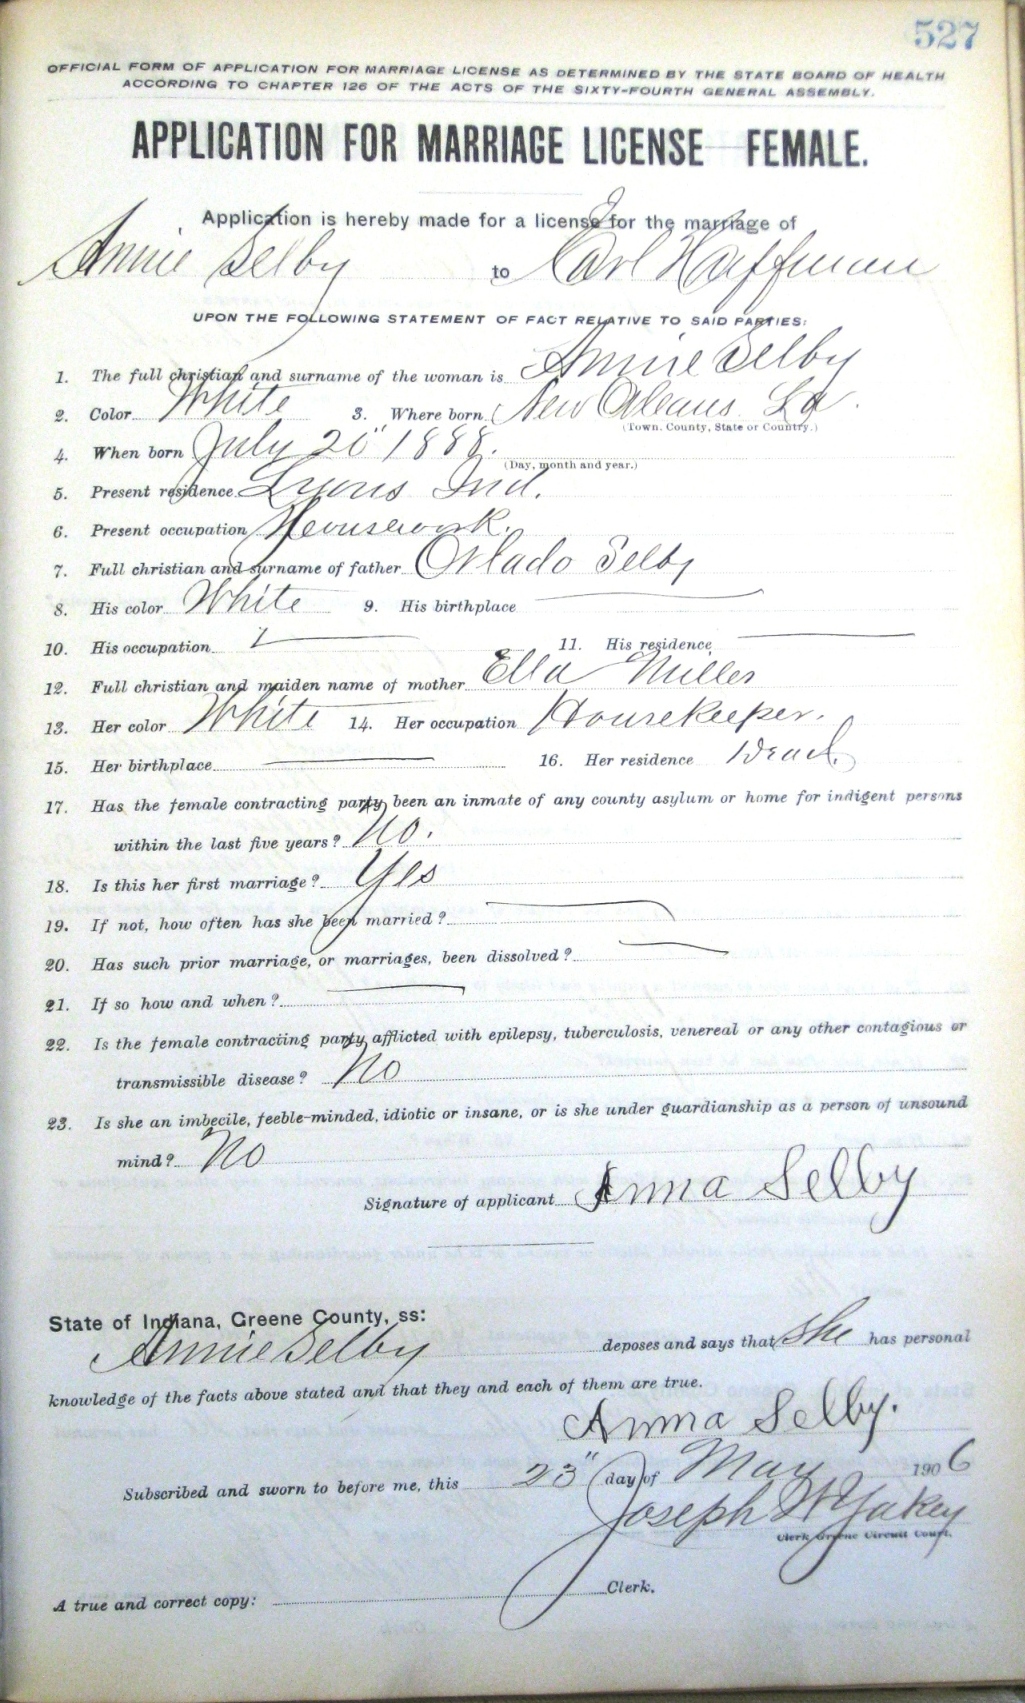 527
OFFICIAL FORM OF APPLICATION FOR MARRIAGE LICENSE AS DETERMINED BY THE STATE BOARD OF HEALTH
ACCORDING TO CHAPTER 126 OF THE ACTS OF THE SIXTY-FOURTH GENERAL ASSEMBLY.
APPLICATION FOR MARRIAGE LICENSE FEMALE.
Application is hereby made for a license for the marriage of
Annie Selby to Earl Haffman
UPON THE FOLLOWING STATEMENT OF FACT RELATIVE TO SAID PARTIES:
1. The full christian and surname of the woman is Annie Selby
2. Color White 3. Where born New Orleans La.
(Town, County, State or Country.)
4. When born July 20" 1888.
(Day, month and year.)
5. Present residence Lyons Ind.
6. Present occupation Housework.
7. Full christian and surname of father Orlado Selby
8. His color White 9. His birthplace
10. His occupation 11. His residence
12. Full christian and maiden name of mother Ella Miller
13. Her color White 14. Her occupation Housekeeper.
15. Her birthplace 16. Her residence Dead.
17. Has the female contracting party been an inmate of any county asylum or home for indigent persons
within the last five years? No.
18. Is this her first marriage? Yes
19. If not, how often has she been married?
20. Has such prior marriage, or marriages, been dissolved?
21. If so how and when?
22. Is the female contracting party afflicted with epilepsy, tuberculosis, venereal or any other contagious or
transmissible disease? No
23. Is she an imbecile, feeble-minded, idiotic or insane, or is she under guardianship as a person of unsound
mind? No
Signature of applicant Anna Selby
State of Indiana, Greene County, ss:
Annie Selby deposes and says that she has personal
knowledge of the facts above stated and that they and each of them are true.
Anna Selby.
Subscribed and sworn to before me, this 23" day of May 1906
Joseph W Yakey
Clerk Greene Circuit Court.
A true and correct copy: Clerk.